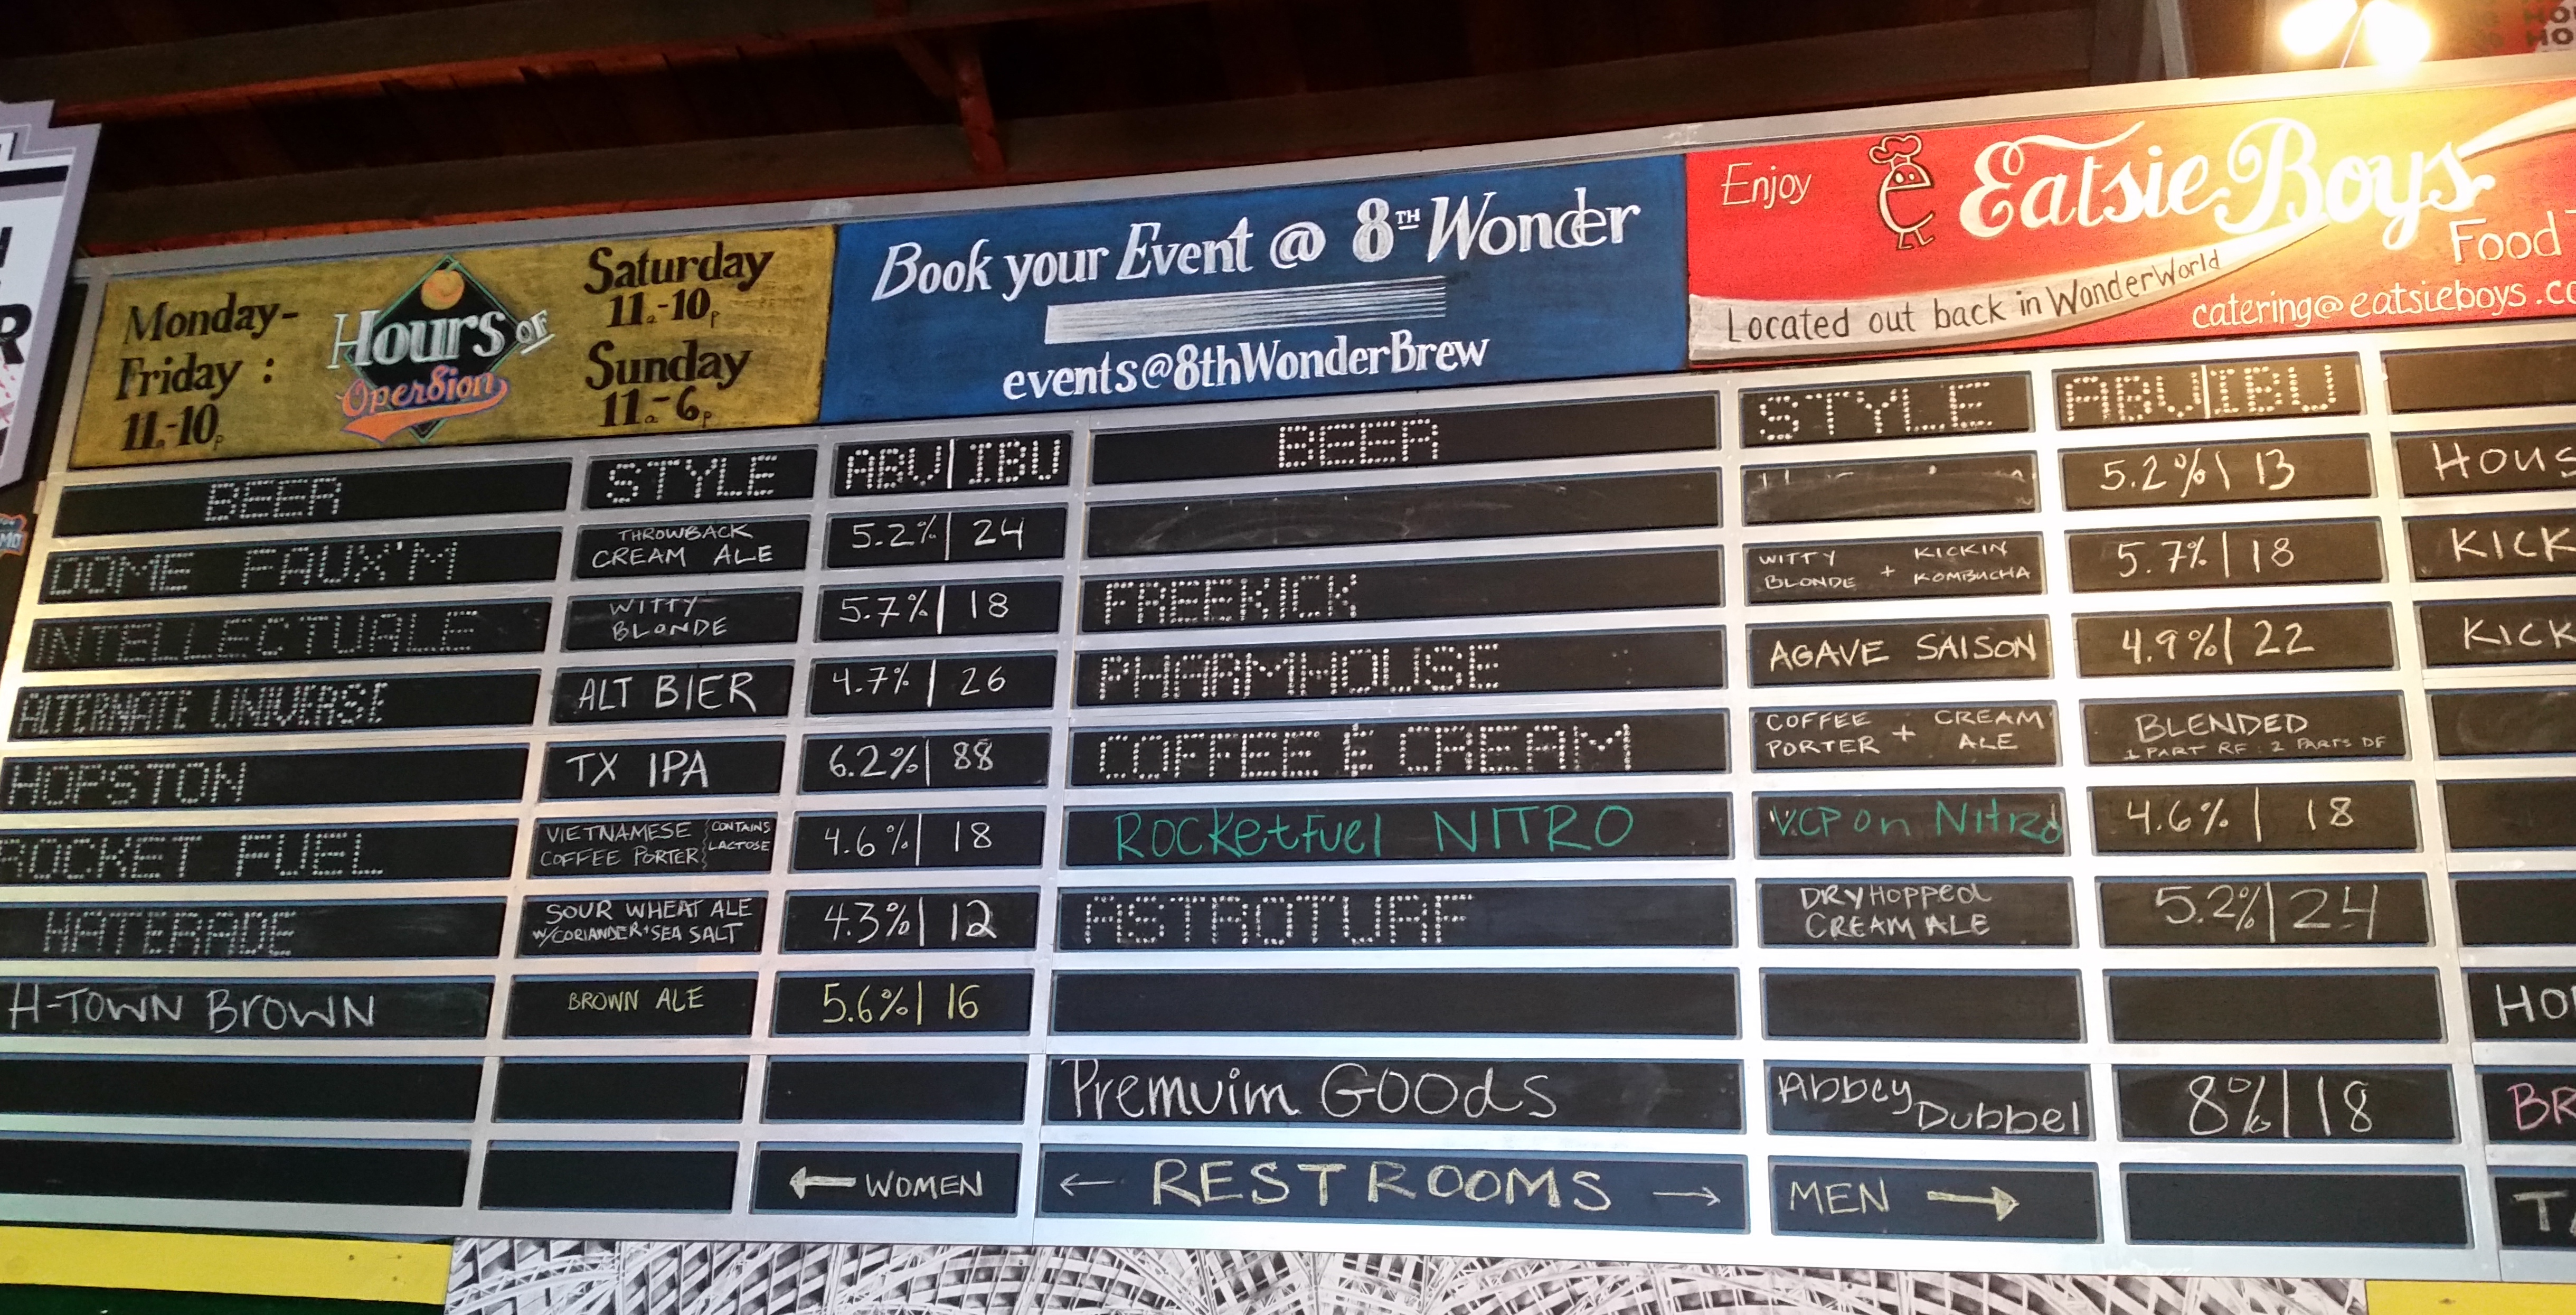 Monday-
Friday :
11a-10p
Hours OF
Oper8ion
Saturday
11a-10p
Sunday
11a-6p
Book your Event @ 8TH Wonder
events@8thWonderBrew
Enjoy
Eatsie Boys
Food
Located out back in WonderWorld
catering@eatsieboys.co
BEER STYLE ABV|IBU
DOME FAUX'M THROWBACK CREAM ALE 5.2%| 24
INTELLECTUALE WITTY BLONDE 5.7%| 18
ALTERNATE UNIVERSE ALT BIER 4.7% | 26
HOPSTON TX IPA 6.2%| 88
ROCKET FUEL VIETNAMESE COFFEE PORTER {CONTAINS LACTOSE 4.6%| 18
HATERADE SOUR WHEAT ALE W/CORIANDER+SEA SALT 4.3%| 12
H-TOWN BROWN BROWN ALE 5.6%| 16
← WOMEN
BEER STYLE ABV|IBU
5.2%\ 13
FREEKICK WITTY BLONDE + KICKIN KOMBUCHA 5.7%| 18
PHARMHOUSE AGAVE SAISON 4.9%| 22
COFFEE & CREAM COFFEE PORTER + CREAM ALE BLENDED 1 PART RF : 2 PARTS DF
ROCKetFuel NITRO VCP on Nitro 4.6% | 18
ASTROTURF DRYHOPPED CREAM ALE 5.2%| 24
Premuim GOODs Abbey Dubbel 8%| 18
← RESTROOMS →
MEN →
HOUS
KICK
KICK
HO
BR
T